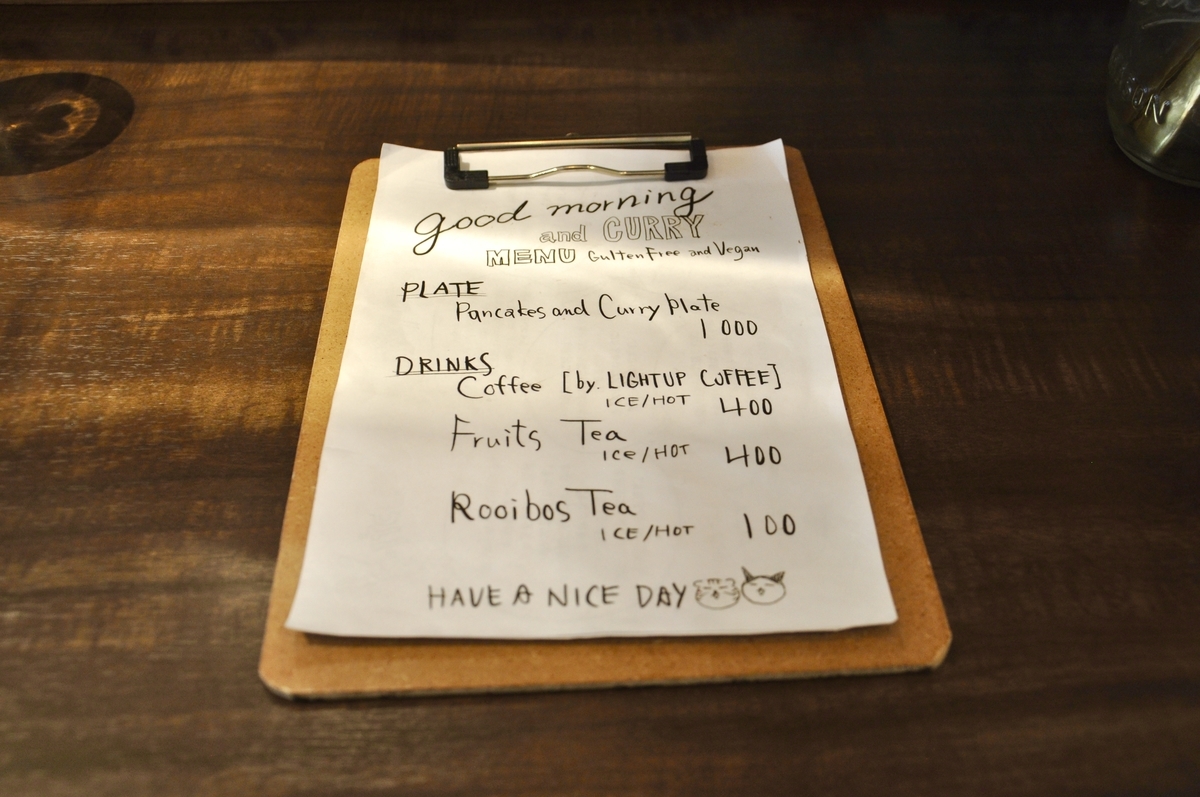 good morning
and CURRY
MENU GultenFree and Vegan
PLATE
Pancakes and Curry Plate
1 000
DRINKS
Coffee [by. LIGHTUP COFFEE]
ICE/HOT 400
Fruits Tea
ICe/HOT 400
Rooibos Tea
ICE/HOT 100
HAVE A NICE DAY